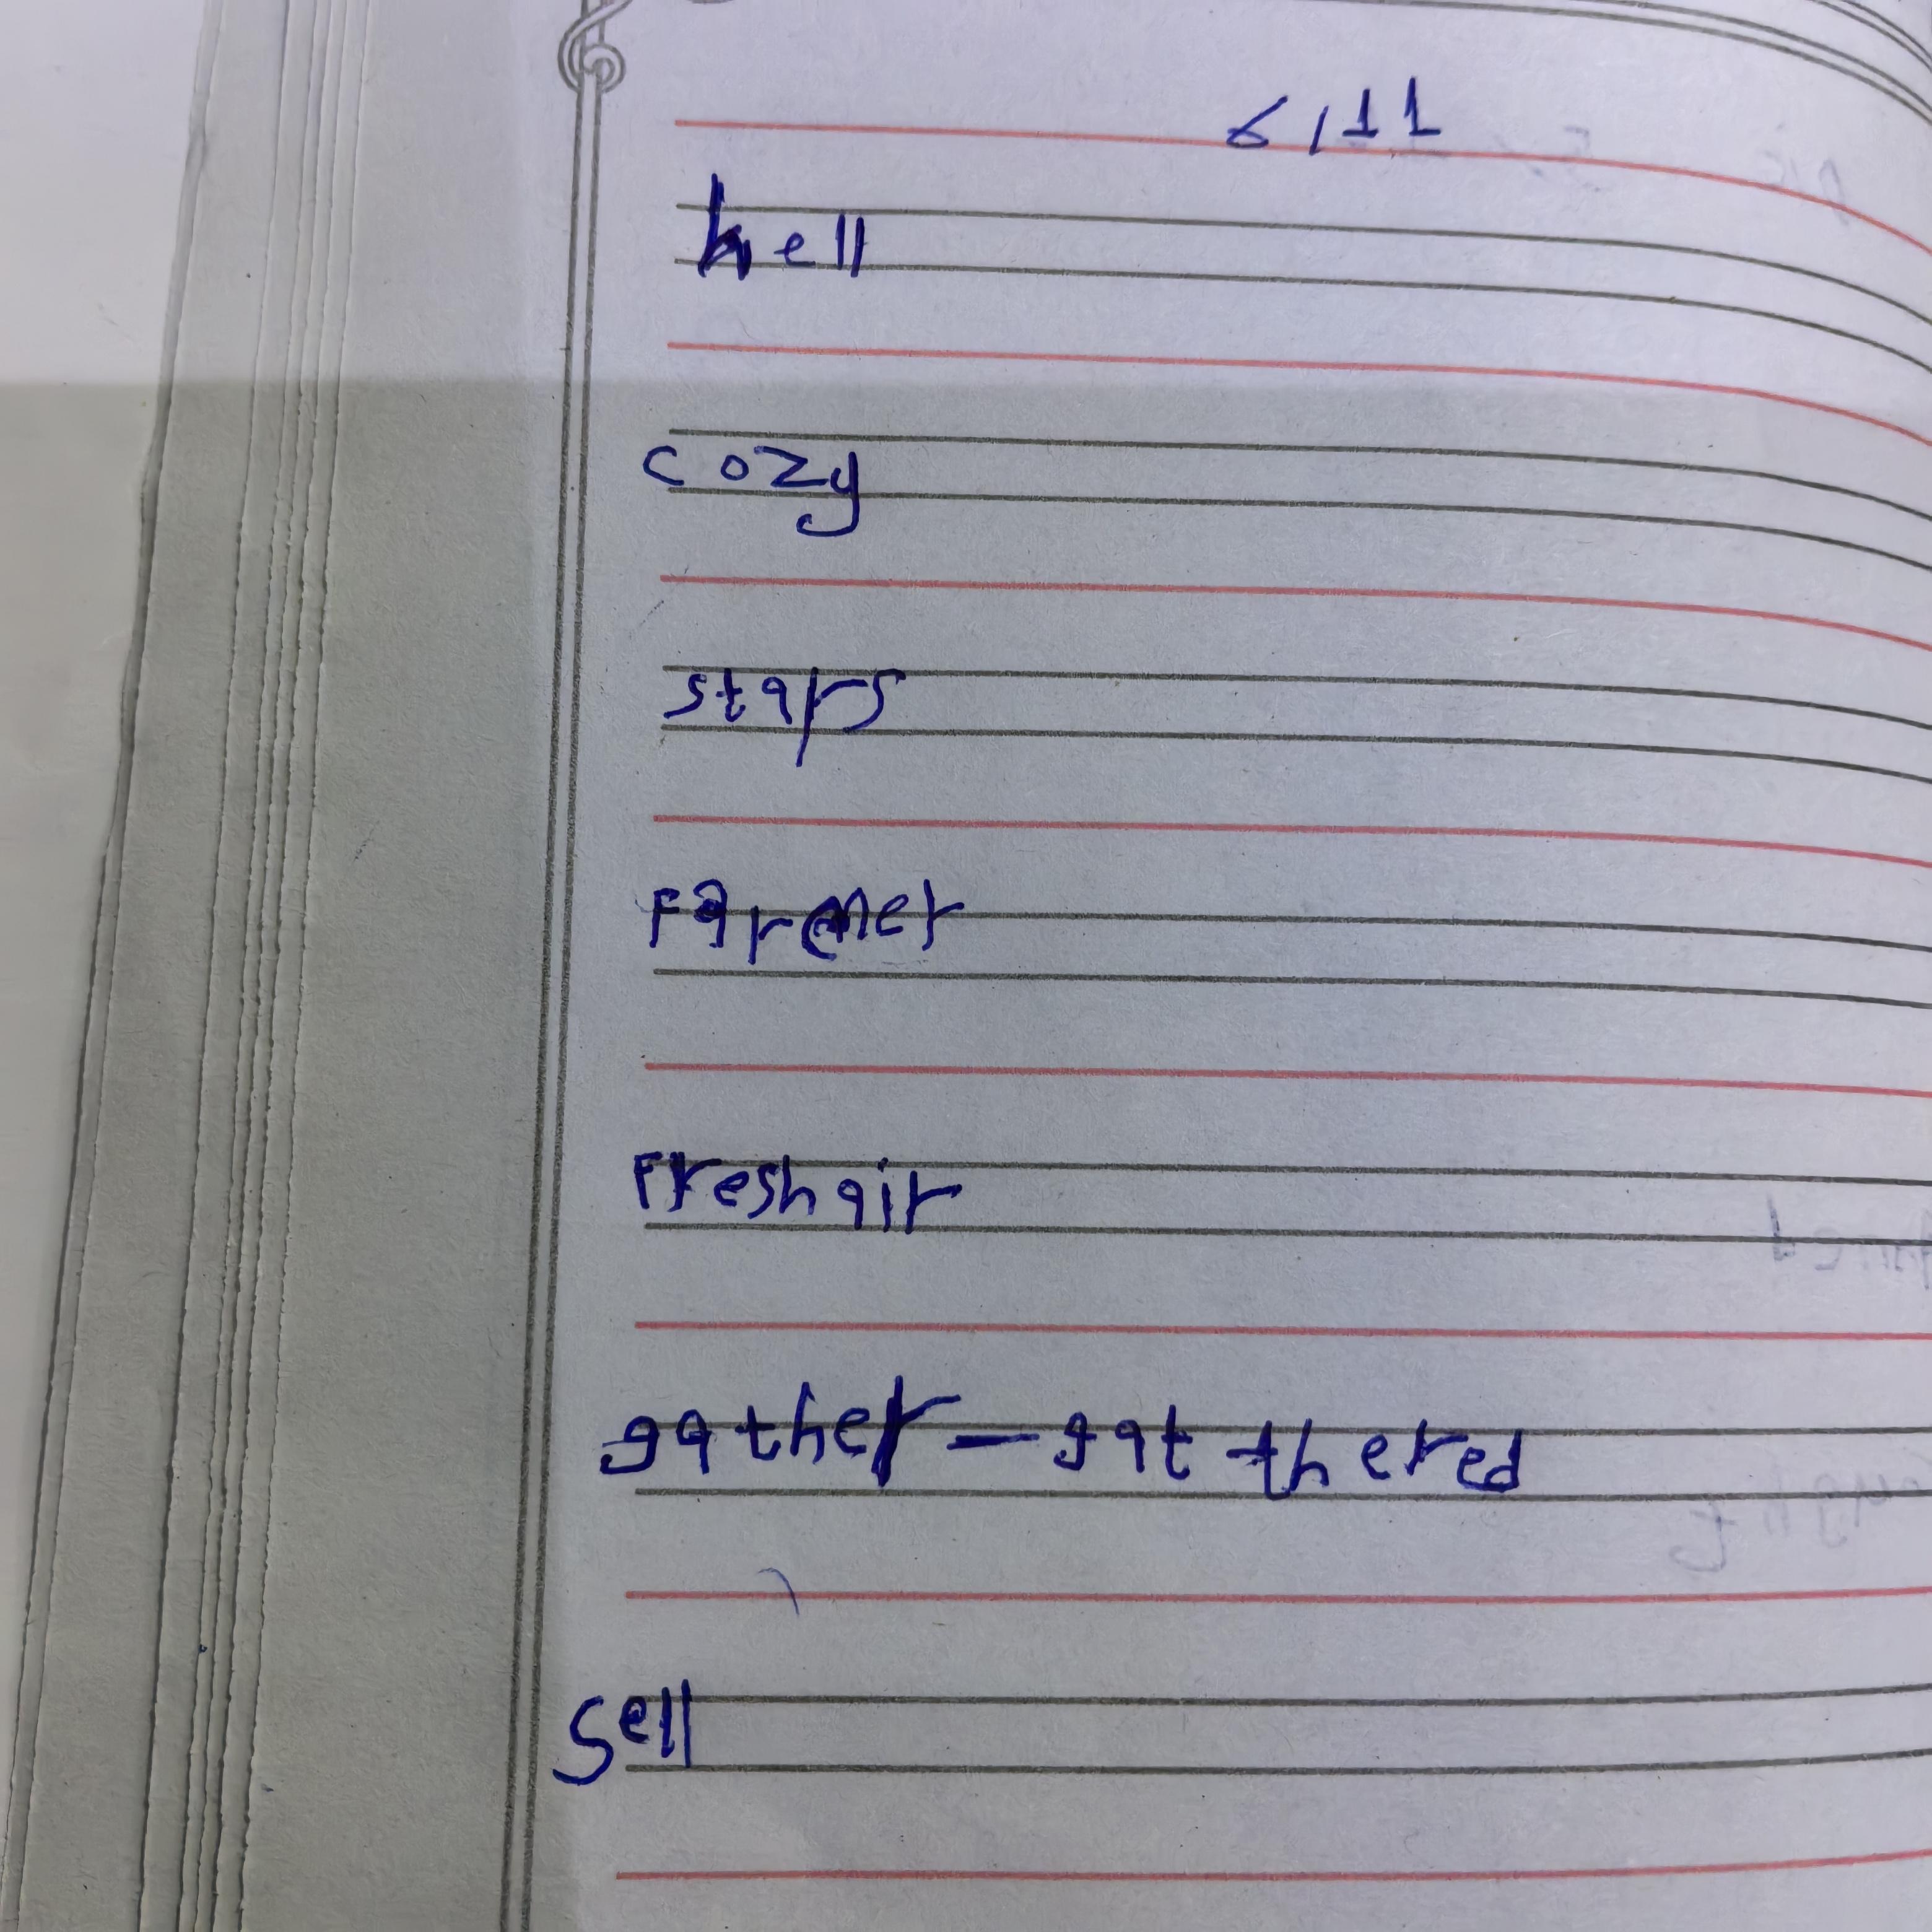 6/11
hell
cozy
stars
Farmer
Fresh air
gather – gat thered
Sell